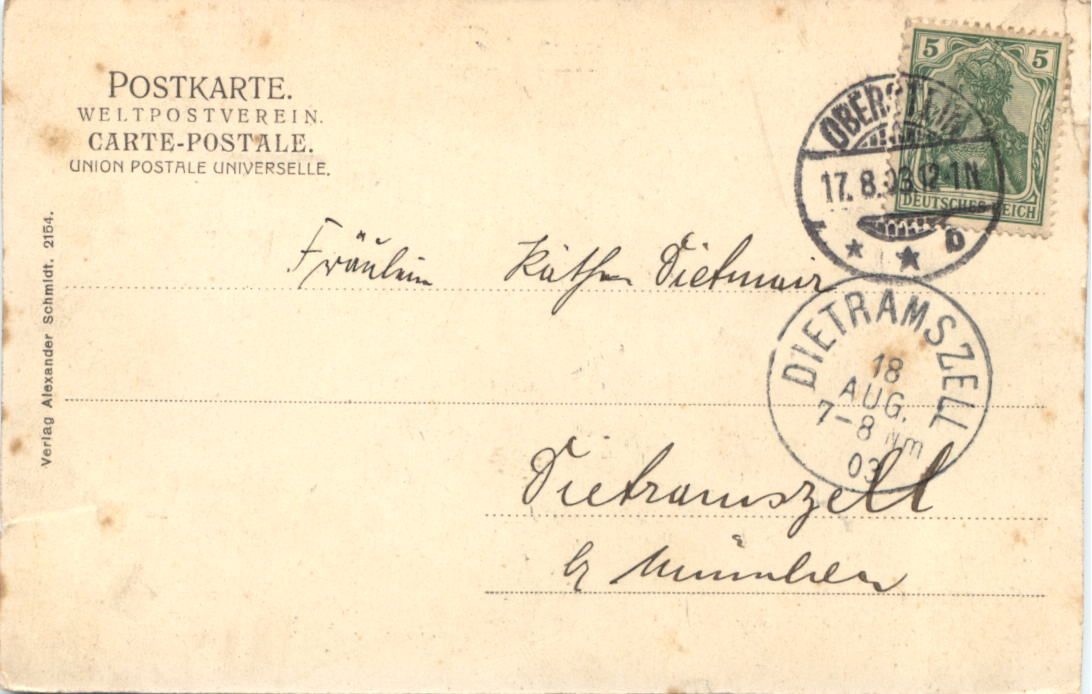 POSTKARTE.
WELTPOSTVEREIN.
CARTE-POSTALE.
UNION POSTALE UNIVERSELLE.
5 5
DEUTSCHES REICH
17. 8. 03 12-1N
b
Verlag Alexander Schmidt. 2154.
Fräulein Dietmair
DIETRAMSZELL
18
AUG.
7-8 Nm
03
Dietramszell
b/ München